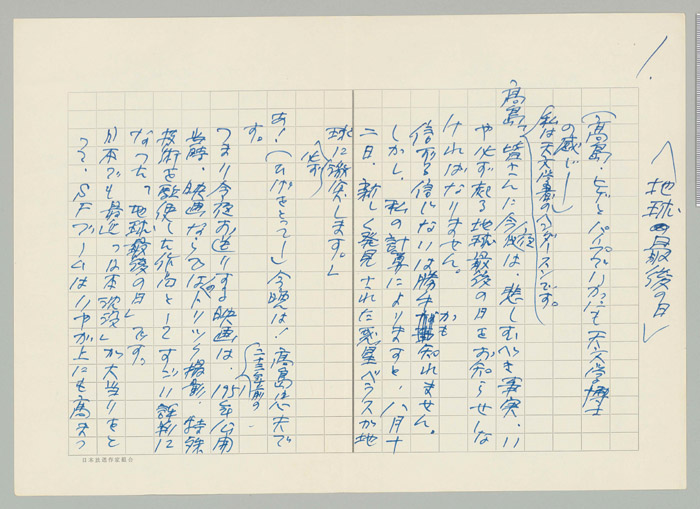 1.
「地球最後の日」
(高島・ヒゲとパイプいかにも天文学博士
の感じ――)
「私は天文学者のヘンダースンです。
高島「皆さんに今夜は、悲しむべき事実、い
や必ず起る地球最後の日をお知らせしな
ければなりません。
信ずる信じないは勝手かも知れません。
しかし、私の計算によりますと、八月十
二日、新しく発見された惑星ベラスが地
球に必ず激突します。」
あ!(ひげをとって―)今晩は!高島忠夫で
す。
つまり今夜お送りする映画は、1951年公開
当時、映画ならではのトリック撮影、特殊
技術を駆使した作品としてすごい評判に
なった「地球最後の日」です。
日本でも最近「日本沈没」が大当りをと
って、SFブームはいやが上にも高まっ
日本放送作家組合